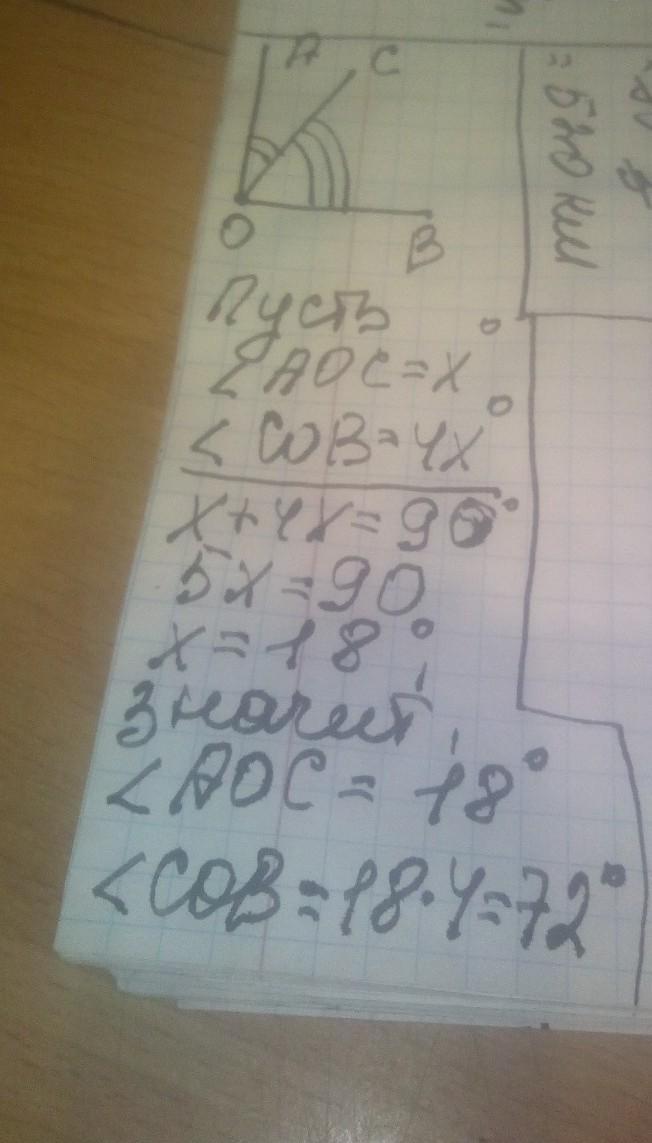 A C
O
B
Пусть
∠AOC=x°
∠COB=4x°
x+4x=90°
5x=90
x=18°
Значит,
∠AOC=18°
∠COB=18·4=72°